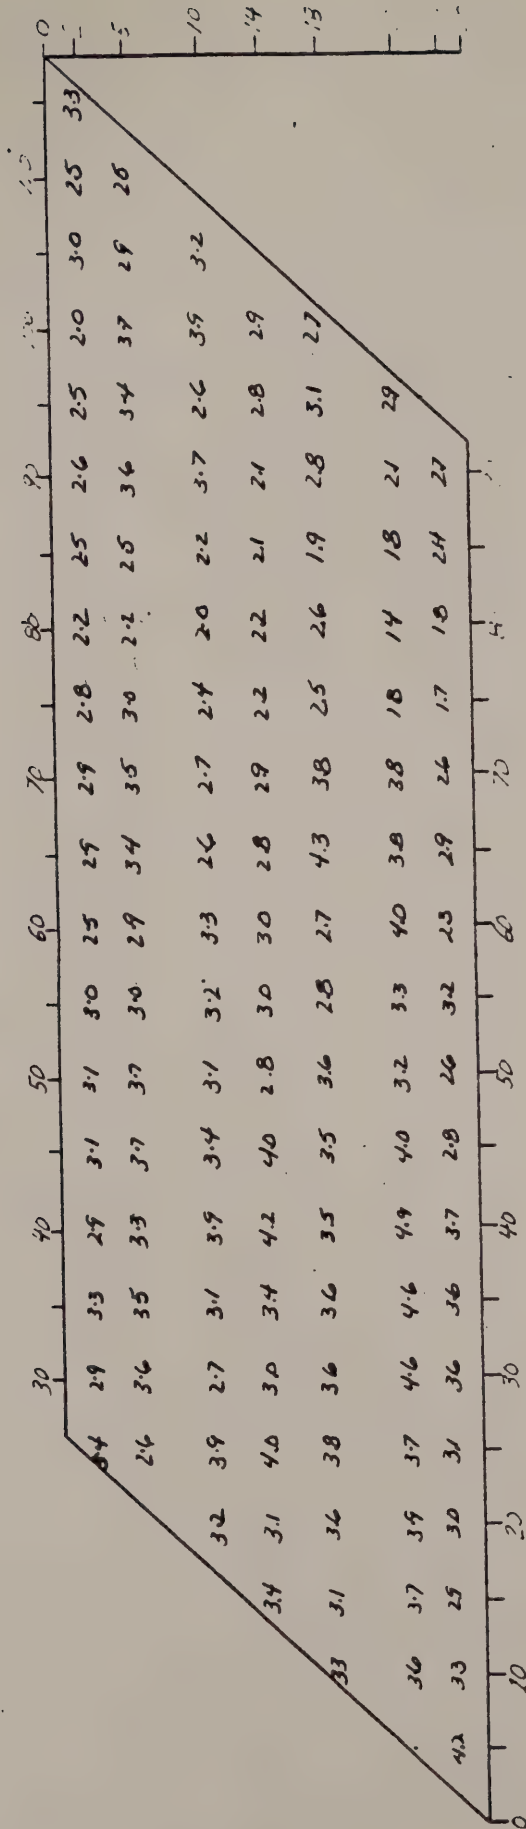 30 40 50 60 70 80 90 0
2.9 3.3 29 3.1 3.1 3.0 25 29 2.9 2.8 2.2 25 2.6 2.5 2.0 3.0 25 33
2.6 3.6 35 3.3 3.7 3.7 3.0 29 34 35 3.0 2.2 25 36 3.4 37 29 5
32 3.9 2.7 3.1 3.9 3.4 3.1 3.2 3.3 26 2.7 2.4 2.0 2.2 3.7 2.6 3.9 3.2 10
3.4 3.1 4.0 30 3.4 4.2 40 2.8 30 30 28 29 22 22 21 21 2.8 2.9 14
33 3.1 36 38 36 36 35 3.5 3.6 28 2.7 4.3 38 25 26 1.9 28 3.1 27
36 3.7 39 3.7 4.6 4.6 4.9 4.0 3.2 3.3 40 38 38 18 14 18 21 29
4.2 33 29 30 31 36 36 3.7 2.8 26 32 2.9 26 1.7 18 24 27
0 10 20 30 40 50 60 70